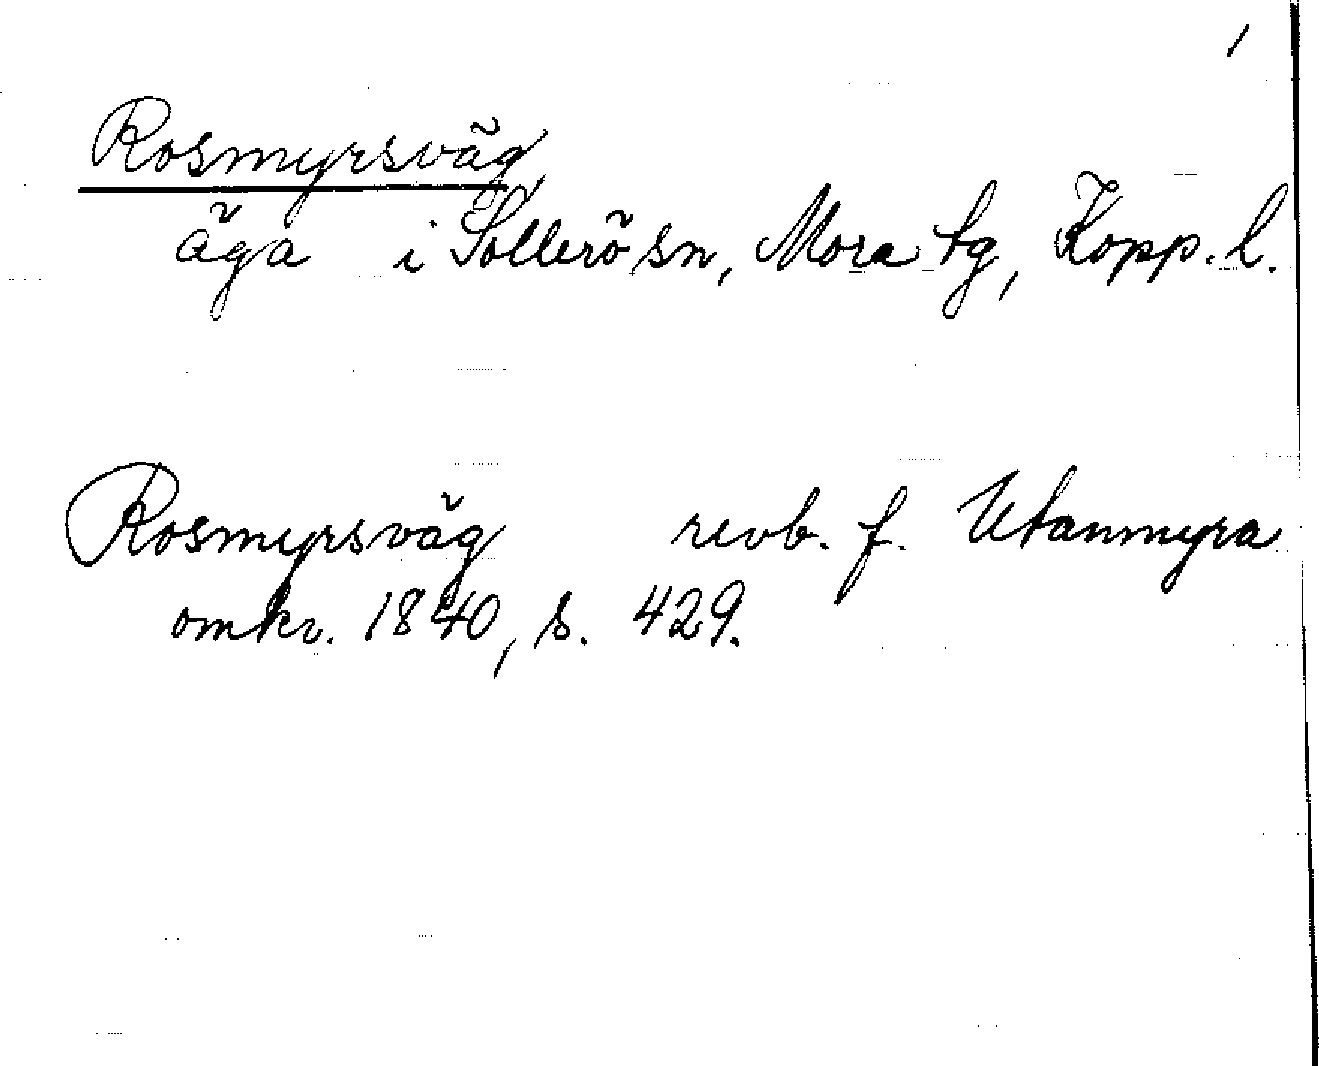 /
Rosmyrsväg
äga i Sollerö sn, Mora tg, Kopp. l.
Rosmyrsväg revb. f. Utanmyra
omkr. 1840, s. 429.